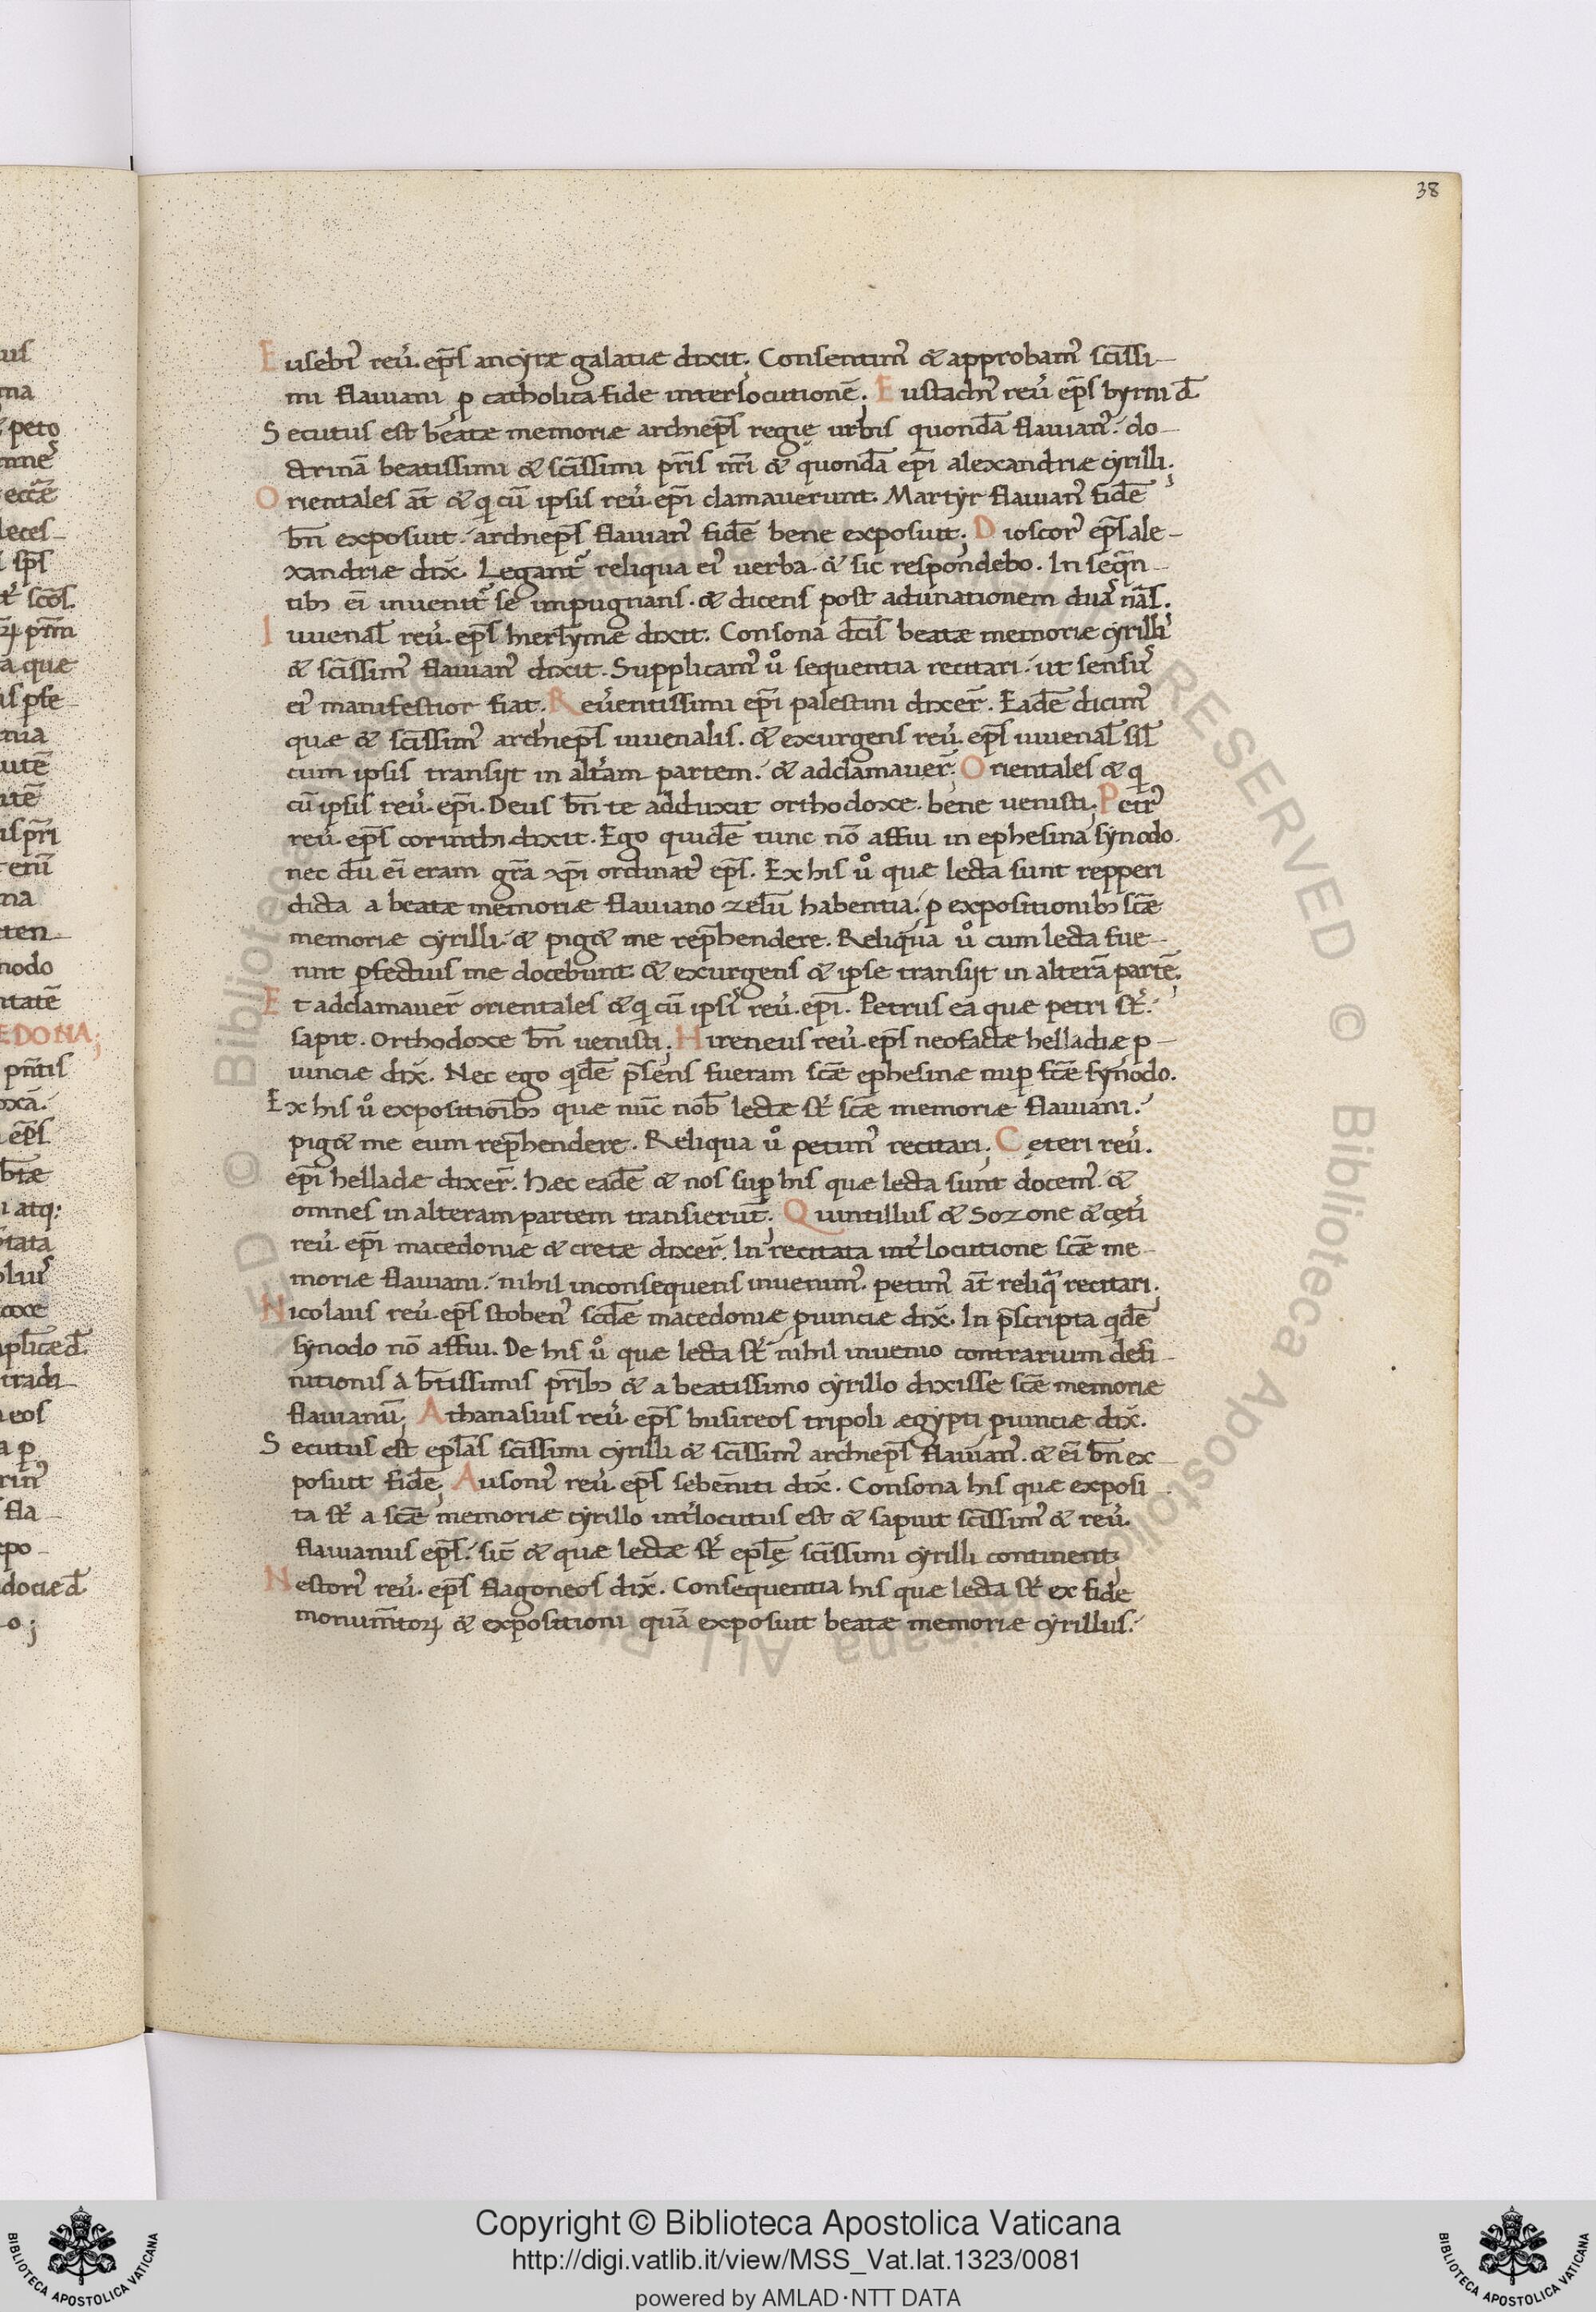 38
Eusebiꝰ reū. ep̄s ancyræ galatiæ dixit. Consentimꝰ & approbamꝰ sc̄issi-
mi flauiani ꝓ catholica fide interlocutionē; Eustachiꝰ reū ep̄s byrni d̄.
Secutus est beatæ memoriæ archiep̄s regię urbis quondā flauianꝰ. do-
ctrinā beatissimi & sc̄issimi pr̄is nr̄i & quondā ep̄i alexandriæ cyrilli;
Orientales aūt & q cū ipsis reū. ep̄i clamauerunt. Martyr flauianꝰ fidē
bn̄ exposuit. archiep̄s flauianꝰ fidē bene exposuit; Dioscorꝰ ep̄s ale-
xandriæ dix̄. Legant᷑ reliqua eiꝰ uerba. & sic respondebo. In seq̄n-
tibꝫ ei inuenit᷑ se impugnans. & dicens post adunationem duaꝝ nās.
Iuuenal̄ reū. ep̄s hierlymæ dixit. Consona dc̄is beatæ memoriæ cyrilli
& sc̄issimꝰ flauianꝰ dixit. Supplicamꝰ ů sequentia recitari. ut sensꝰ
eiꝰ manifestior fiat. Reūentissimi ep̄i palestini dixer̄. Eadē dicimꝰ
quæ & sc̄issimꝰ archiep̄s iuuenalis. & exurgens reū. ep̄s iuuenal̄ sil̄
cum ipsis transiit in alt̄am partem. & adclamauer̄. Orientales & q
cū ipsis reū. ep̄i. Deus bn̄ te adduxit orthodoxe. bene uenisti; Petrꝰ
reū. ep̄s corinthi dixit. Ego quidē tunc nō affui in ephesina synodo.
nec dū ei eram gr̄a xp̄i ordinatꝰ ep̄s. Ex his ů quæ lecta sunt repperi
dicta a beatæ memoriæ flauiano zelū habentia. ꝓ expositionibꝫ sc̄æ
memoriæ cyrilli. & pig& me rep̄hendere. Reliqua ů cum lecta fue-
rint ꝑfectius me docebunt. & exurgens & ipse transiit in alterā partē;
Et adclamauer̄ orientales & q cū ipsiꝰ reū. ep̄i. Petrus ea quæ petri st̄.
sapit. Orthodoxe bn̄ uenisti; Hireneus reū. ep̄s neofactæ helladiæ ꝓ-
uinciæ dix̄. Nec ego qdē p̄sens fueram sc̄æ ephesinæ nuꝑ fc̄æ synodo.
Ex his ů expositioībꝫ quæ nūc nob̄ lectæ st̄ sc̄æ memoriæ flauiani.
pig& me eum rep̄hendere. Reliqua ů petimꝰ recitari; Cęteri reū.
ep̄i helladæ dixer̄. Hæc eadē & nos suꝑ his quæ lecta sunt docemꝰ. &
omnes in alteram partem transierūt; Quintillus & Sozone & cęt̄i
reū. ep̄i macedoniæ & cretæ dixer̄. In recitata int̄locutione sc̄æ me-
moriæ flauiani. nihil inconsequens inuenimꝰ. petimꝰ aūt reliq̄ recitari;
Nicolaus reū. ep̄s stobenꝰ sc̄dæ macedoniæ ꝓuinciæ dix̄. In p̄scripta qdē
synodo nō affui. De his ů quæ lecta st̄ nihil inuenio contrarium defi-
nitionis à b̄tissimis pr̄ibꝫ & a beatissimo cyrillo dixisse sc̄æ memoriæ
flauianū; Athanasius reū. ep̄s busireos tripoli ægypti ꝓuinciæ dix̄.
Secutus est epl̄as sc̄issimi cyrilli & sc̄issimꝰ archiep̄s flauianꝰ. & ei bn̄ ex-
posuit fidē; Ausoniꝰ reū. ep̄s sebēniti dix̄. Consona his quæ exposi-
ta st̄ a sc̄æ memoriæ cyrillo int̄locutus est & sapuit sc̄issimꝰ & reū.
flauianus ep̄s. sic̄ & quæ lectæ st̄ epl̄ę sc̄issimi cyrilli continent;
Nestoriꝰ reū. ep̄s flagoneos dix̄. Consequentia his quæ lecta st̄ ex fide
monum̄toꝝ & expositioni quā exposuit beatæ memoriæ cyrillus.
Copyright © Biblioteca Apostolica Vaticana
http://digi.vatlib.it/view/MSS_Vat.lat.1323/0081
powered by AMLAD·NTT DATA